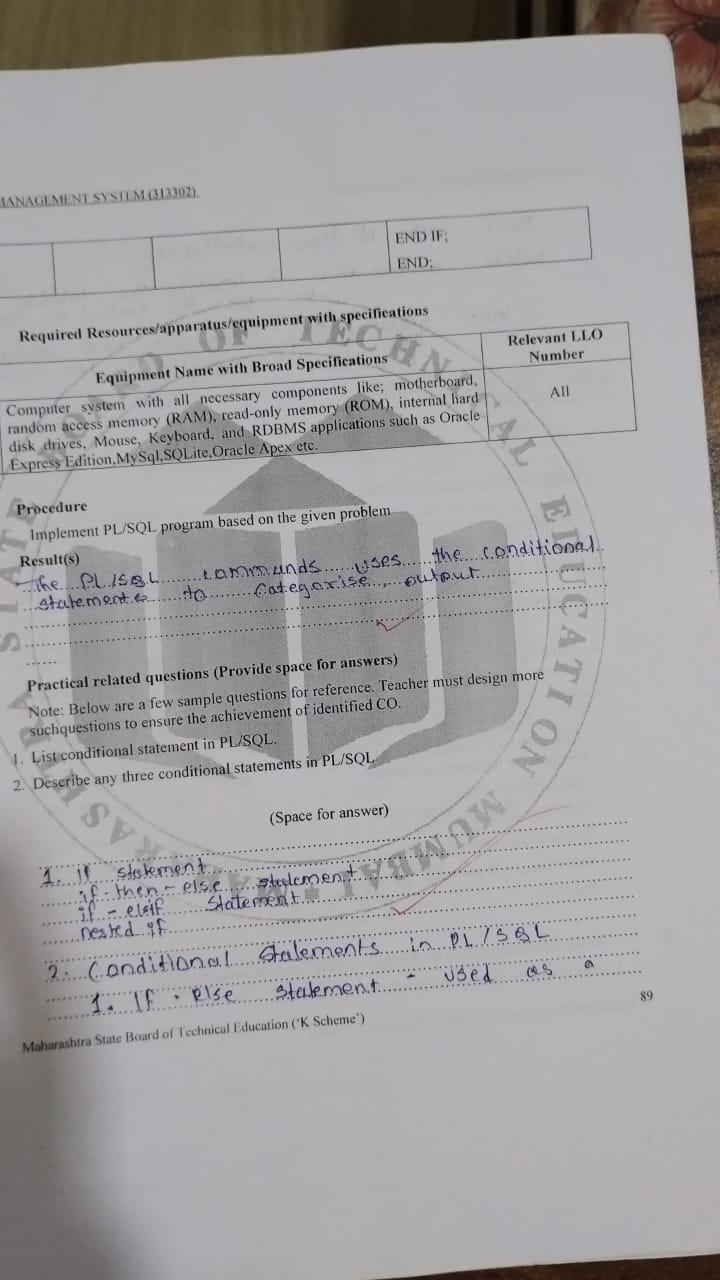 MANAGEMENT SYSTEM (313302)
END IF;
END;
Required Resources/apparatus/equipment with specifications
Equipment Name with Broad Specifications
Relevant LLO Number
Computer system with all necessary components like; motherboard,
random access memory (RAM), read-only memory (ROM), internal hard
disk drives, Mouse, Keyboard, and RDBMS applications such as Oracle
Express Edition,MySql,SQLite,Oracle Apex etc.
All
Procedure
Implement PL/SQL program based on the given problem
Result(s)
The PL/SQL commands uses the conditional
statements to categorise output
Practical related questions (Provide space for answers)
Note: Below are a few sample questions for reference. Teacher must design more
suchquestions to ensure the achievement of identified CO.
1. List conditional statement in PL/SQL.
2. Describe any three conditional statements in PL/SQL
(Space for answer)
1. if statement
if-then-else statement
if - elsif statement
nested if
2. Conditional statements in PL/SQL
1. If - else statement - used as a
89
Maharashtra State Board of Technical Education ('K Scheme')
BOARD OF TECHNICAL EDUCATION MUMBAI
MAHARASHTRA STATE